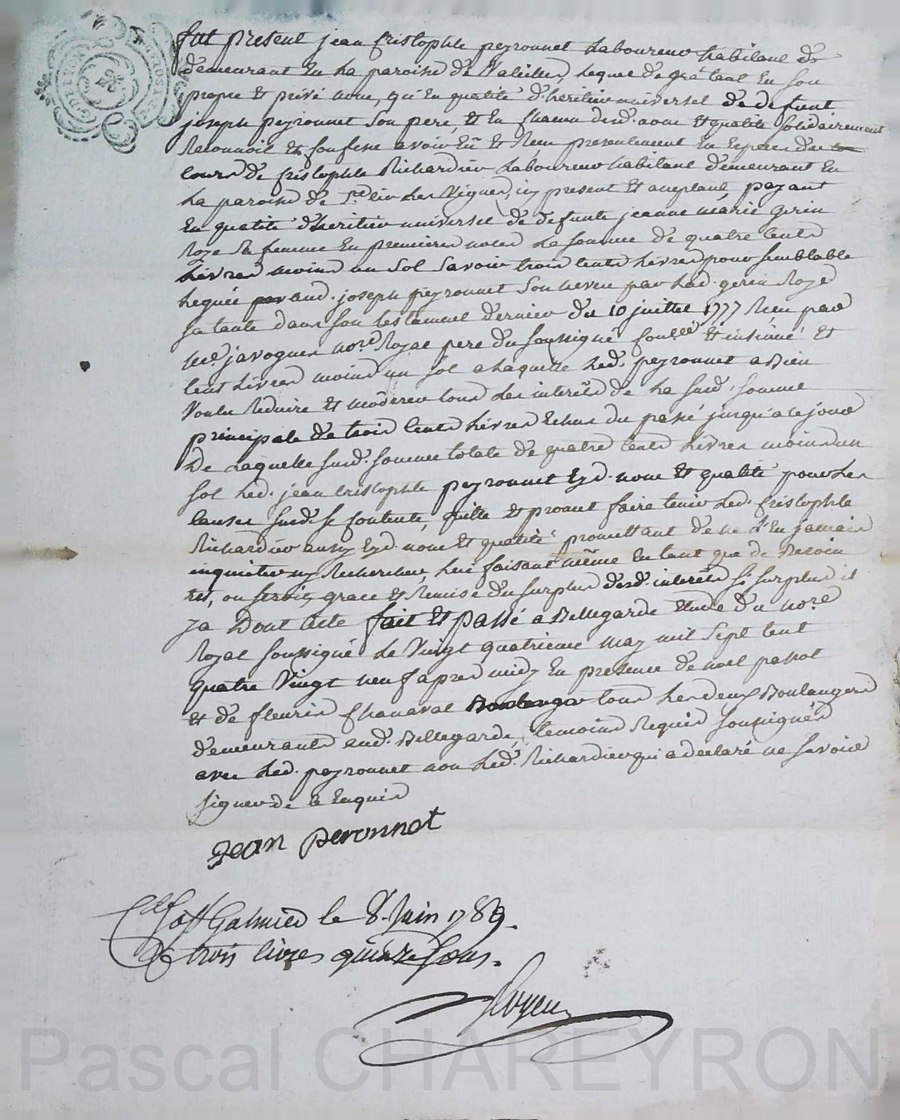 fut present jean Cristophle peyronnet Laboureur habitant et
demeurant en la paroisse de Valeille, lequel de gré tant en son
propre et privé nom, qu'en qualité d'heritier universel de defunt
joseph peyronnet son pere, et en chacun desd. nom et qualité solidairement
Reconnoit et confesse avoir Eû et Reçu presentement en Especes de
cours de Cristophle Richardier Laboureur habitant demeurant en
la paroisse de St. Cir les Vignes, icy present et acceptant, payant
en qualité d'heritier universel de defunte jeanne marie gerin
Roze sa femme en premieres noces La somme de quatre cents
Livres moins un sol savoir trois cents Livres pour semblable
leguée aud. joseph peyronnet son neveu par lad. gerin Roze
sa tante dans son testament dernier du 10 juillet 1777 Reçu par
me. javogues nore. Royal pere du soussigné conllé. et insinué et
cent Livres moins un sol a laquelle led. peyronnet a Bien
Voulu Reduire et moderer tous les interêts de la sud. somme
principale de trois cents Livres Echus du passé jusqu'a ce jour
De laquelle sud. somme totale de quatre cents Livres moins un
sol led. jean Cristophle peyronnet Ezd. nom et qualité pour les
causes susd. se contente, quitte et promet faire tenir led. Cristophle
Richardier aussy Ezd. nom et qualité promettant de ne l'En jamais
inquieter ny Rechercher, lui faisant même en tant que de Besoin
grace et Remise du surplus desd. interêts sy surplus il
ya Dont acte fait et passé a Bellegarde Etude du nore.
Royal soussigné le Vingt quatrieme may mil sept cent
quatre Vingt neuf apres midy En presence de noel
et de fleurin Chanaval tous Les deux Boulangers
demeurants aud. Bellegarde, temoins Requis soussignés
avec led. peyronnet non led. Richardier qui a declaré ne savoir
signer de ce Enquis
jean peronnet
Galmier le 8. Juin 1789.
trois livres quinze sous.
Pascal CHAREYRON